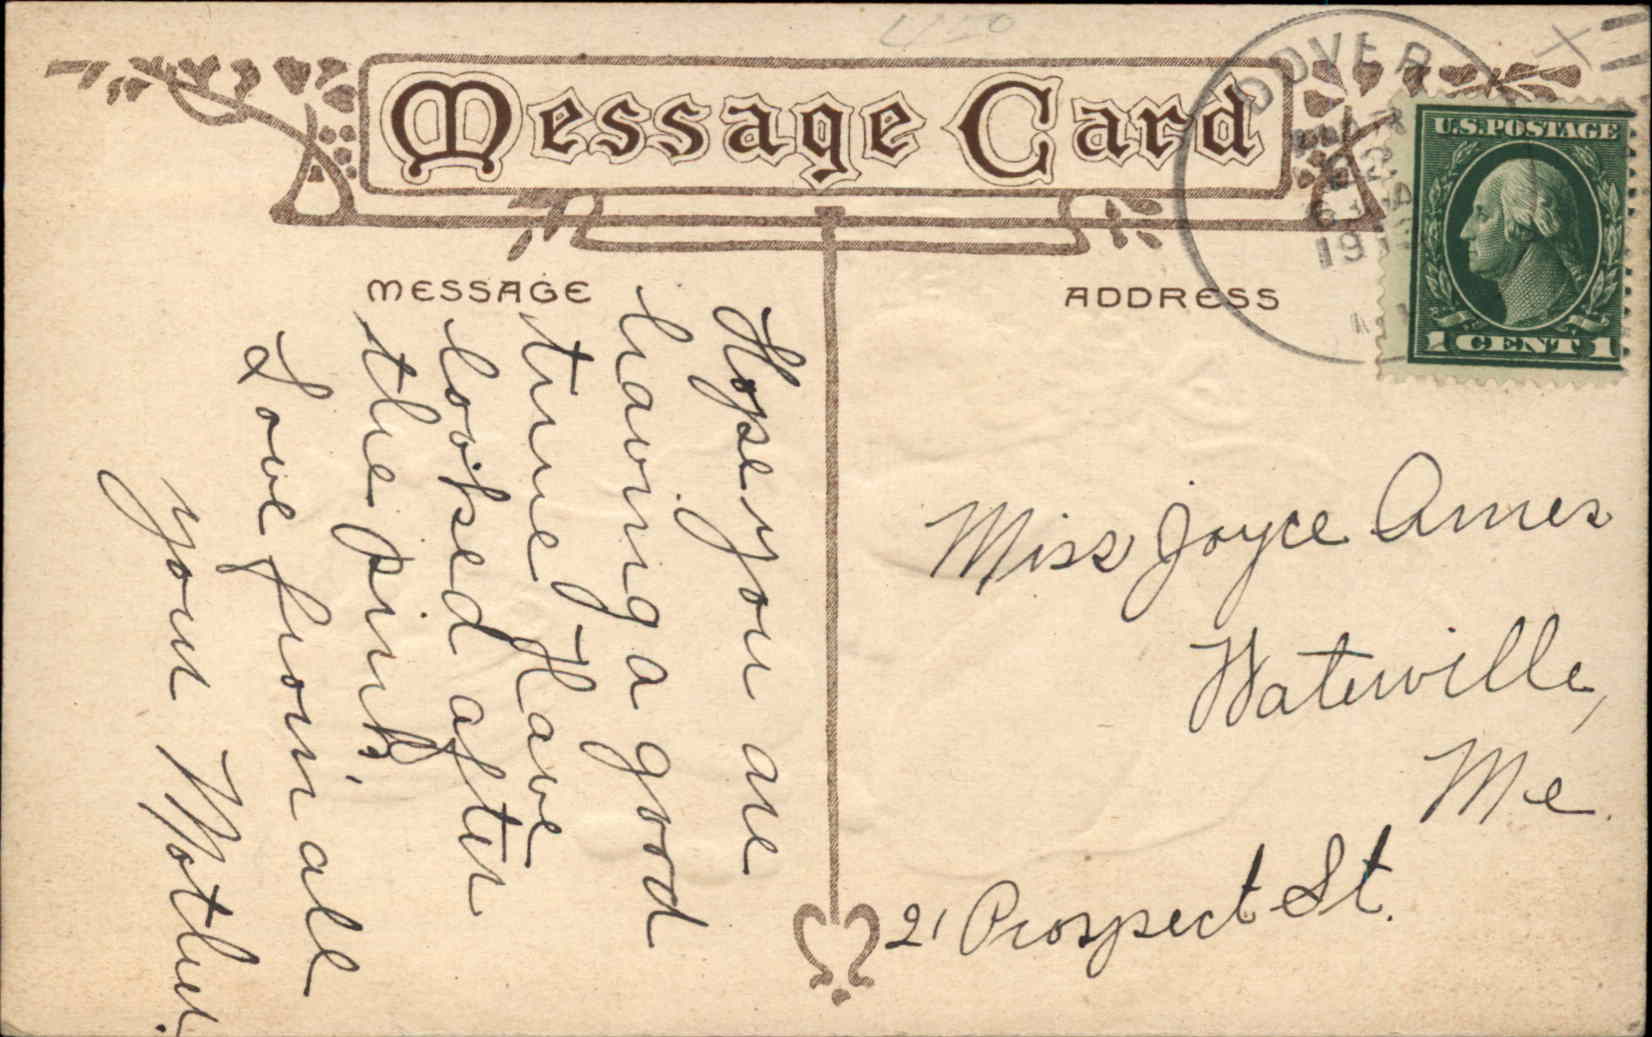 Message Card
DOVER
19
U.S. POSTAGE
1 CENT 1
MESSAGE
ADDRESS
Hope you are
having a good
time. Have
looked after
the pink.
Love from all
your Mother.
Miss Joyce Ames
Waterville,
Me.
21 Prospect St.